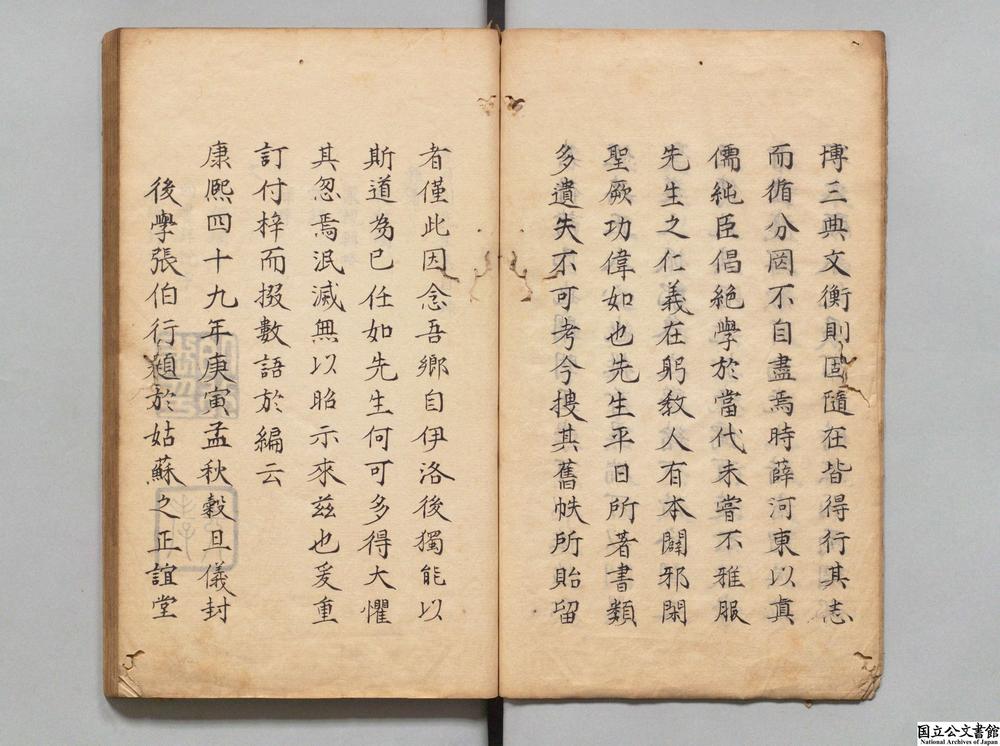 博三典文衡則固隨在皆得行其志
而循分罔不自盡焉時薛河東以真
儒純臣倡絕學於當代未嘗不雅服
先生之仁義在躬教人有本闢邪閑
聖厥功偉如也先生平日所著書類
多遺失不可考今搜其舊帙所貽留
者僅此因念吾鄉自伊洛後獨能以
斯道為已任如先生何可多得大懼
其忽焉泯滅無以昭示來茲也爰重
訂付梓而掇數語於編云
康熈四十九年庚寅孟秋穀旦儀封
後學張伯行題於姑蘇之正誼堂
国立公文書館
National Archives of Japan